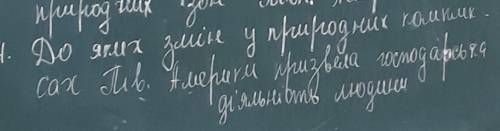 природних зон
1. До яких змін у природних комплек-
сах Півн. Америки призвела господарська
діяльність людини